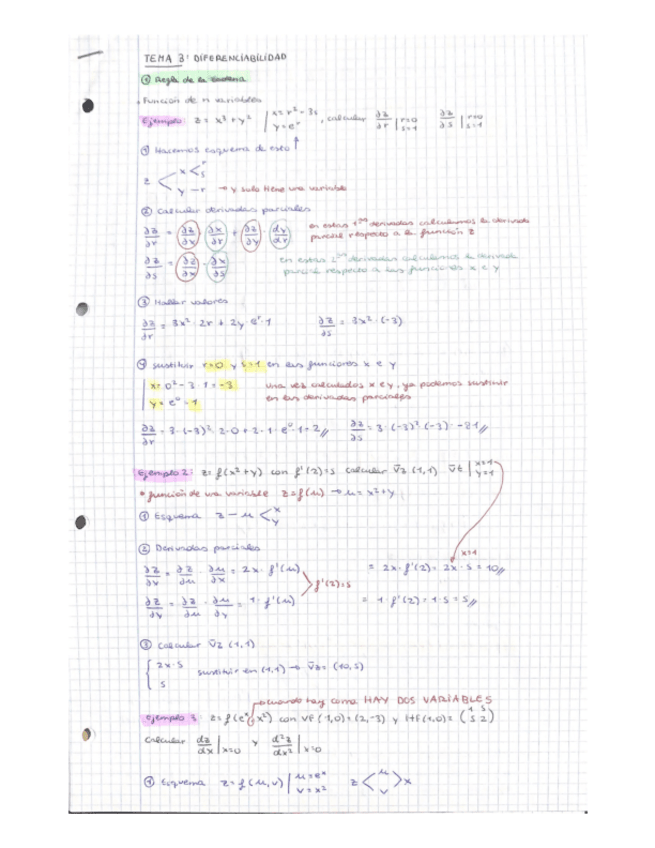 TEMA 3: DIFERENCIABILIDAD
① Regla de la cadena
· Función de n variables
Ejemplo: z = x³ + y² | x = r² - 3s, y = eʳ, calcular ∂z/∂r | r=0 s=1   ∂z/∂s | r=0 s=1
① Hacemos esquema de esto ↑
z < x < r s
y — r → y solo tiene una variable
② Calcular derivadas parciales
∂z/∂r = ∂z/∂x · ∂x/∂r + ∂z/∂y · dy/dr
en estas 1ᵃˢ derivadas calculamos la derivada parcial respecto a la función z
∂z/∂s = ∂z/∂x · ∂x/∂s
en estas 2ᵃˢ derivadas calculamos la derivada parcial respecto a las funciones x e y
③ Hallar valores
∂z/∂r = 3x² · 2r + 2y · eʳ · 1   ∂z/∂s = 3x² · (-3)
④ Sustituir r=0 y s=1 en las funciones x e y
x = 0² - 3 · 1 = -3
y = e⁰ = 1
una vez calculados x e y, ya podemos sustituir en las derivadas parciales
∂z/∂r = 3 · (-3)² · 2 · 0 + 2 · 1 · e⁰ · 1 = 2//   ∂z/∂s = 3 · (-3)² · (-3) = -81//
Ejemplo 2: z = f(x² + y) con f'(2) = 5 calcular ∇z (1,1)   | x=1 y=1
* función de una variable z = f(u) → u = x² + y
① Esquema z — u < x y
② Derivadas parciales
x=1
∂z/∂x = ∂z/∂u · ∂u/∂x = 2x · f'(u)   = 2x · f'(2) = 2x · 5 = 10//
f'(2) = 5
∂z/∂y = ∂z/∂u · ∂u/∂y = 1 · f'(u)   = 1 · f'(2) = 1 · 5 = 5//
③ Calcular ∇z (1,1)
{ 2x · 5
5
sustituir en (1,1) → ∇z = (10,5)
cuando hay coma HAY DOS VARIABLES
Ejemplo 3: z = f(eˣ, x²) con ∇f (1,0) = (2,-3) y Hf (1,0) = (1 5 5 2)
Calcular dz/dx | x=0 y d²z/dx² | x=0
① Esquema z = f(u,v) | u = eˣ v = x²   z < u v > x